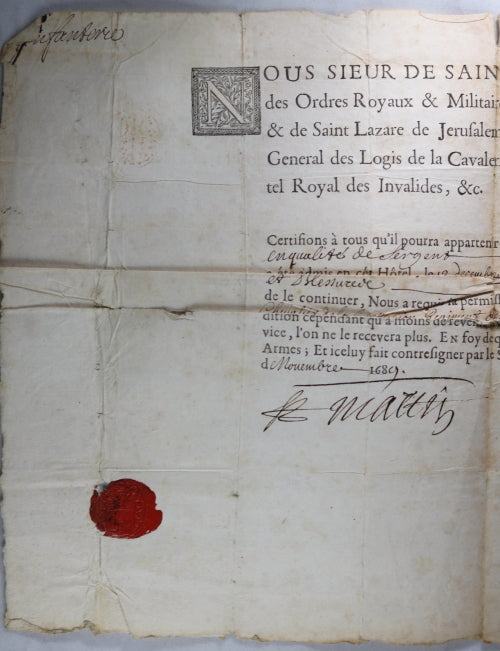 Infanterie
NOUS SIEUR DE SAIN
des Ordres Royaux & Militair
& de Saint Lazare de Jerusalem
General des Logis de la Cavaler
tel Royal des Invalides, &c.
Certifions à tous qu'il pourra appartenir
en qualité de Sergent
esté admis en cét Hôtel, le 19 decembre
et Blessures
de le continuer, Nous a requis la permiss
Regiment de
dition cependant qu'à moins de
vice, l'on ne le recevera plus. EN foy deq
Armes; Et iceluy fait contresigner par le S
de Novembre 1689.
St martin